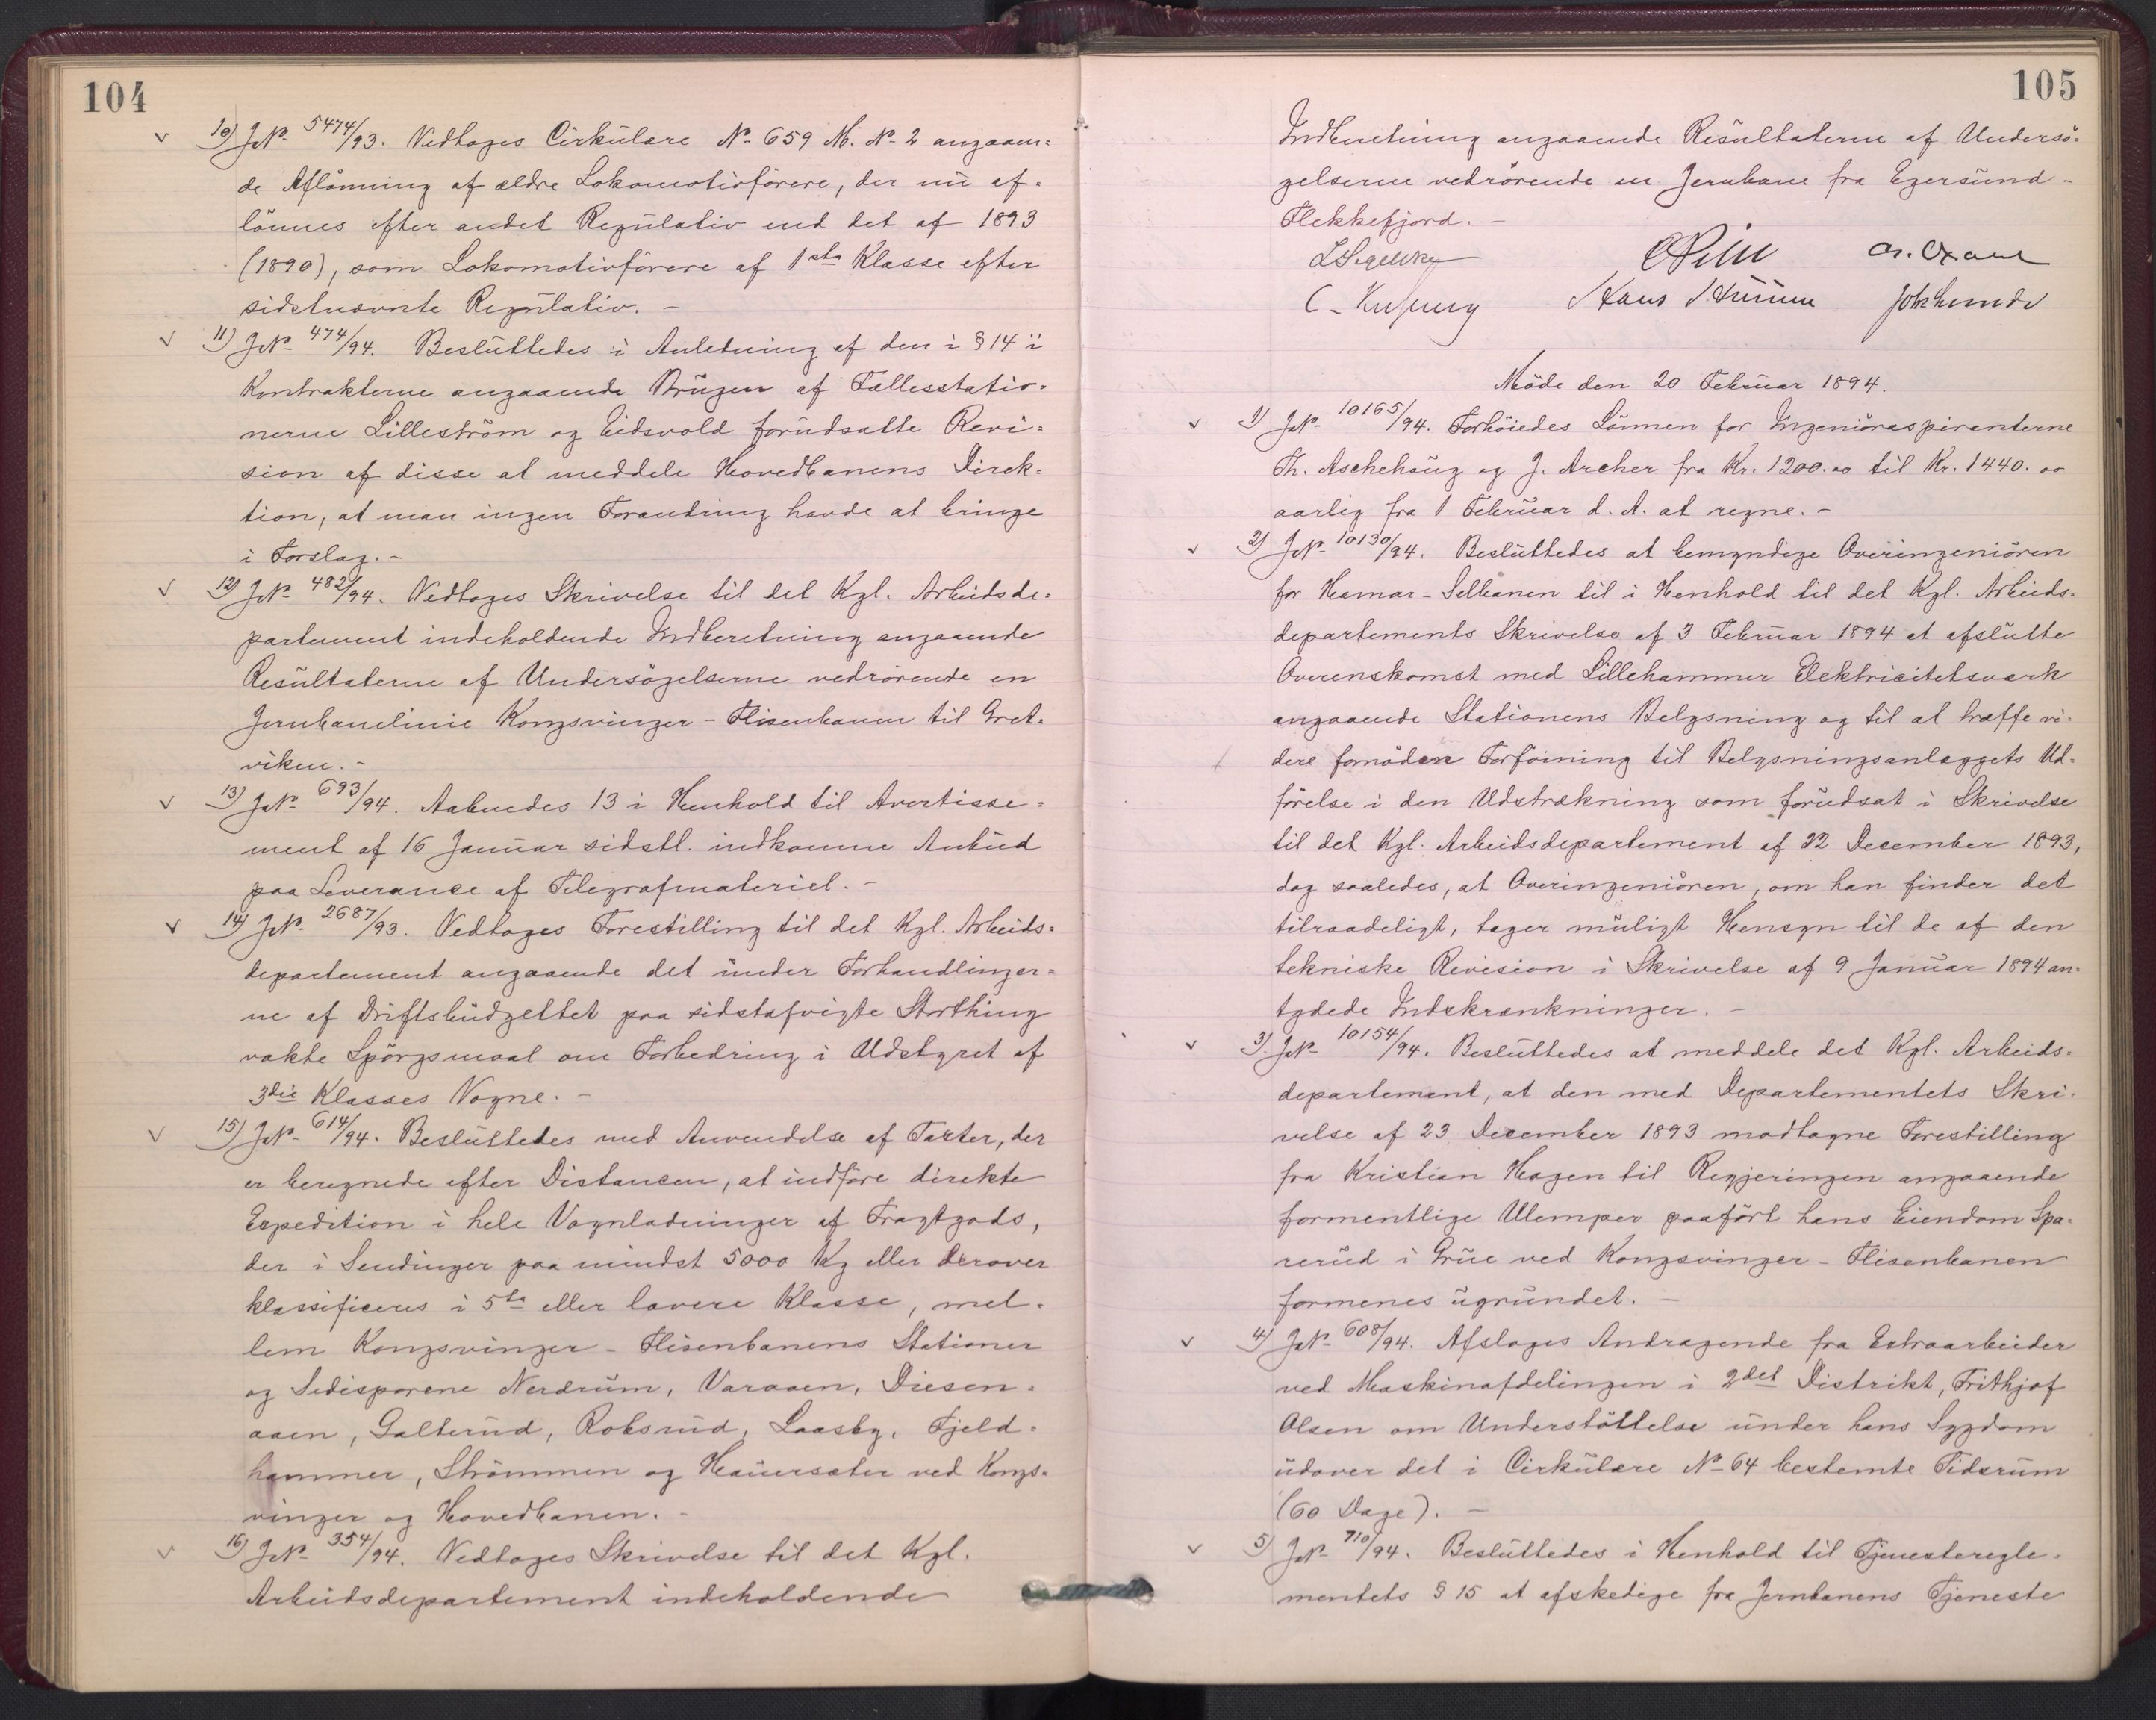 104
10) JN° 5474/93. Vedtoges Cirkulære N° 659 M. N° 2 angaaen=
de Aflönning af ældre Lokomotivförere, der nu af=
lönnes efter andet Regulativ end det af 1893
(1890), som Lokomotivförere af 1ste Klasse efter
sidstnævnte Regulativ. –
11) JN° 474/94. Besluttedes i Anledning af den i § 14 i
Kontrakterne angaaende Brugen af Fællesstatio=
nerne Lilleström og Eidsvold forudsatte Revi=
sion af disse at meddele Hovedbanens Direk=
tion, at man ingen Forandring havde at bringe
i Forslag. –
12) JN° 482/94. Vedtoges Skrivelse til det Kgl. Arbeidsde=
partement indeholdende Indberetning angaaende
Resultaterne af Undersögelserne vedrörende en
Jernbanelinie Kongsvinger – Flisenbanen til Gret=
viken. –
13) JN° 693/94. Aabnedes 13 i Henhold til Avertisse=
ment af 16 Januar sidstl. indkomne Anbud
paa Leverance af Telegrafmateriel. –
14) JN° 2687/93. Vedtoges Forestilling til det Kgl. Arbeids=
departement angaaende det under Forhandlinger=
ne af Driftsbudgettet paa sidstafvigte Storthing
vakte Spörgsmaal om Forbedring i Udstyret af
3die Klasses Vogne. –
15) JN° 614/94. Besluttedes med Anvendelse af Taxter, der
er beregnede efter Distancen, at indföre direkte
Expedition i hele Vognladninger af Fragtgods,
der i Sendinger paa mindst 5000 Kg eller derover
klassificeres i 5te eller lavere Klasse, mel=
lem Kongsvinger – Flisenbanens Stationer
og Sidesporene Nerdrum, Varaaen, Diesen=
aaen, Galterud, Robsrud, Laasby, Fjeld=
hammer, Strömmen og Hauersæter ved Kongs=
vinger og Hovedbanen. –
16) JN° 354/94. Vedtoges Skrivelse til det Kgl.
Arbeidsdepartement indeholdende
105
Indberetning angaaende Resultaterne af Undersö=
gelserne vedrörende en Jernbane fra Egersund –
Flekkefjord. –
C Pihl
Hans
Möde den 20 Februar 1894.
1) JN° 10165/94. Forhöiedes Lönnen for Ingeniöraspiranterne
Th. Aschehoug og J. Archer fra Kr. 1200.00 til Kr. 1440.00
aarlig fra 1 Februar d. A. at regne. –
2) JN° 10130/94. Besluttedes at bemyndige Overingeniören
for Hamar – Selbanen til i Henhold til det Kgl. Arbeids=
departements Skrivelse af 3 Februar 1894 at afslutte
Overenskomst med Lillehammer Elektricitetsværk
angaaende Stationens Belysning og til at træffe vi=
dere fornöden Forföining til Belysningsanlæggets Ud=
förelse i den Udstrækning som forudsat i Skrivelse
til det Kgl. Arbeidsdepartement af 22 December 1893,
dog saaledes, at Overingeniören, om han finder det
tilraadeligt, tager muligt Hensyn til de af den
tekniske Revision i Skrivelse af 9 Januar 1894 an=
tydede Indskrænkninger. –
3) JN° 10154/94. Besluttedes at meddele det Kgl. Arbeids=
departement, at den med Departementets Skri=
velse af 23 December 1893 modtagne Forestilling
fra Kristian Hagen til Regjeringen angaaende
formentlige Ulemper paafört hans Eiendom Spa=
rerud i Grue ved Kongsvinger – Flisenbanen
formenes ugrundet. –
4) JN° 608/94. Afsloges Andragende fra Extraarbeider
ved Maskinafdelingen i 2det Distrikt, Frithjof
Olsen om Understöttelse under hans Sygdom
udover det i Cirkulære N° 64 bestemte Tidsrum
(60 Dage). –
5) JN° 710/94. Besluttedes i Henhold til Tjenesteregle=
mentets § 15 at afskedige fra Jernbanens Tjeneste